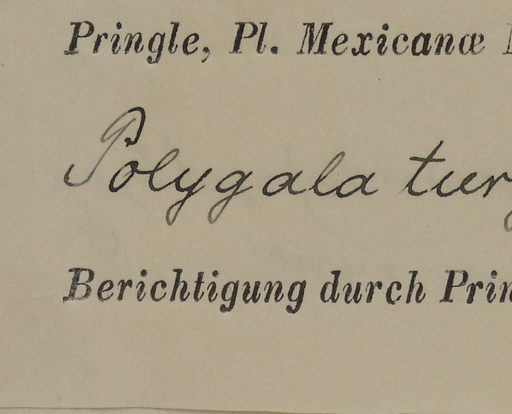 Pringle, Pl. Mexicanæ
Polygala
Berichtigung durch